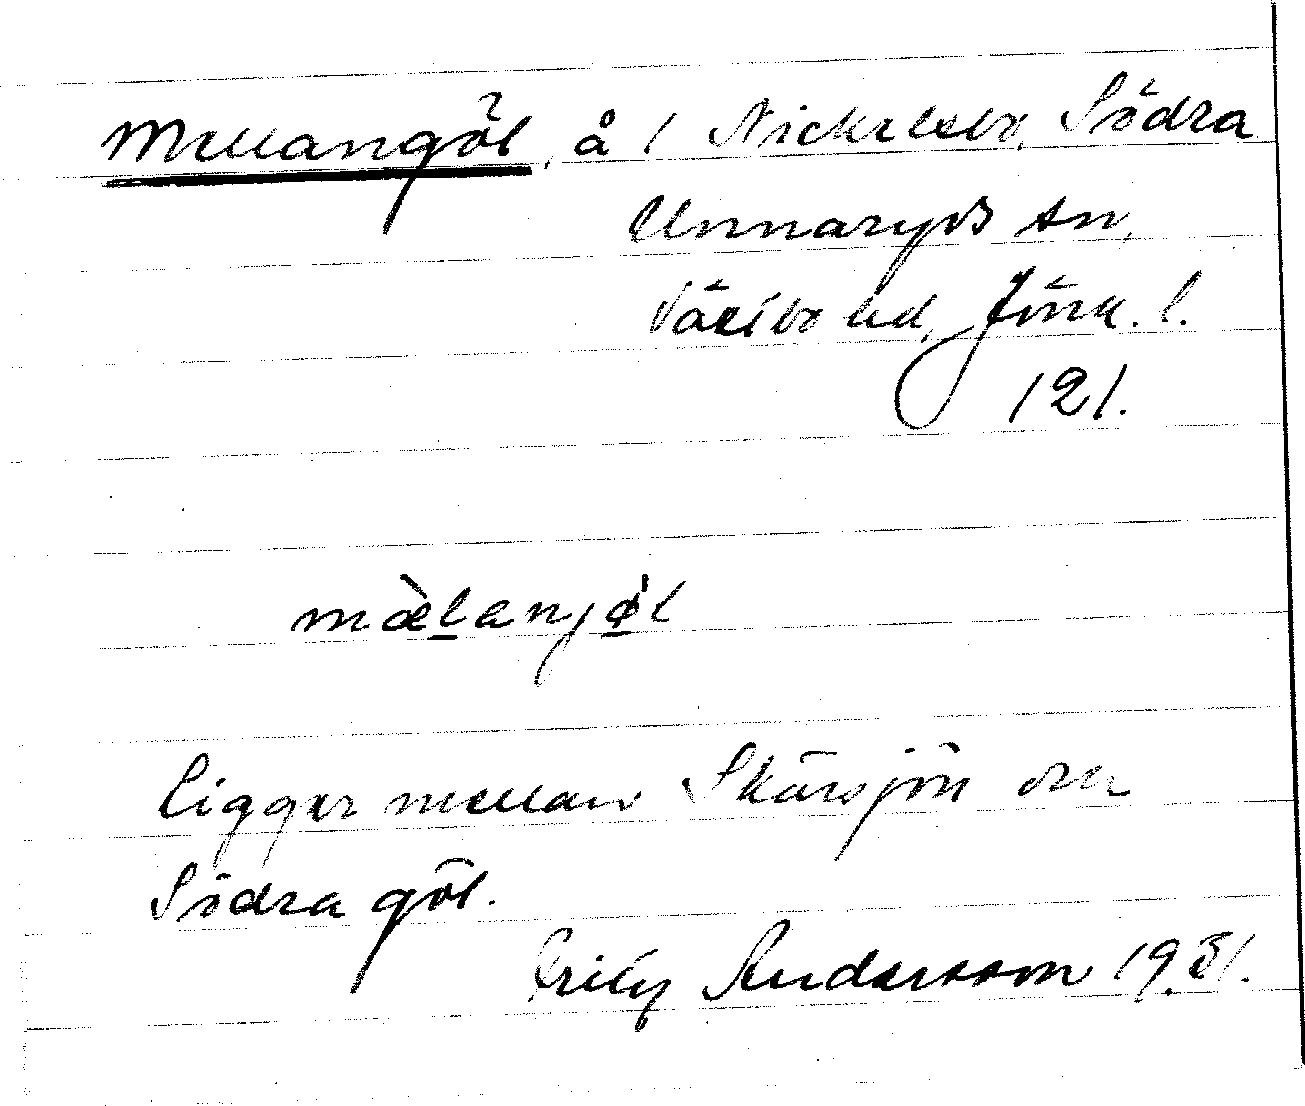 Mellangöl, å 1 Nickelsbo, Södra
Unnaryds sn,
Västbo hd, Jönk. l.
121.
mæ̀lanjø̀l
Ligger mellan Skärsjön och
Södra göl.
Andersson 1931.